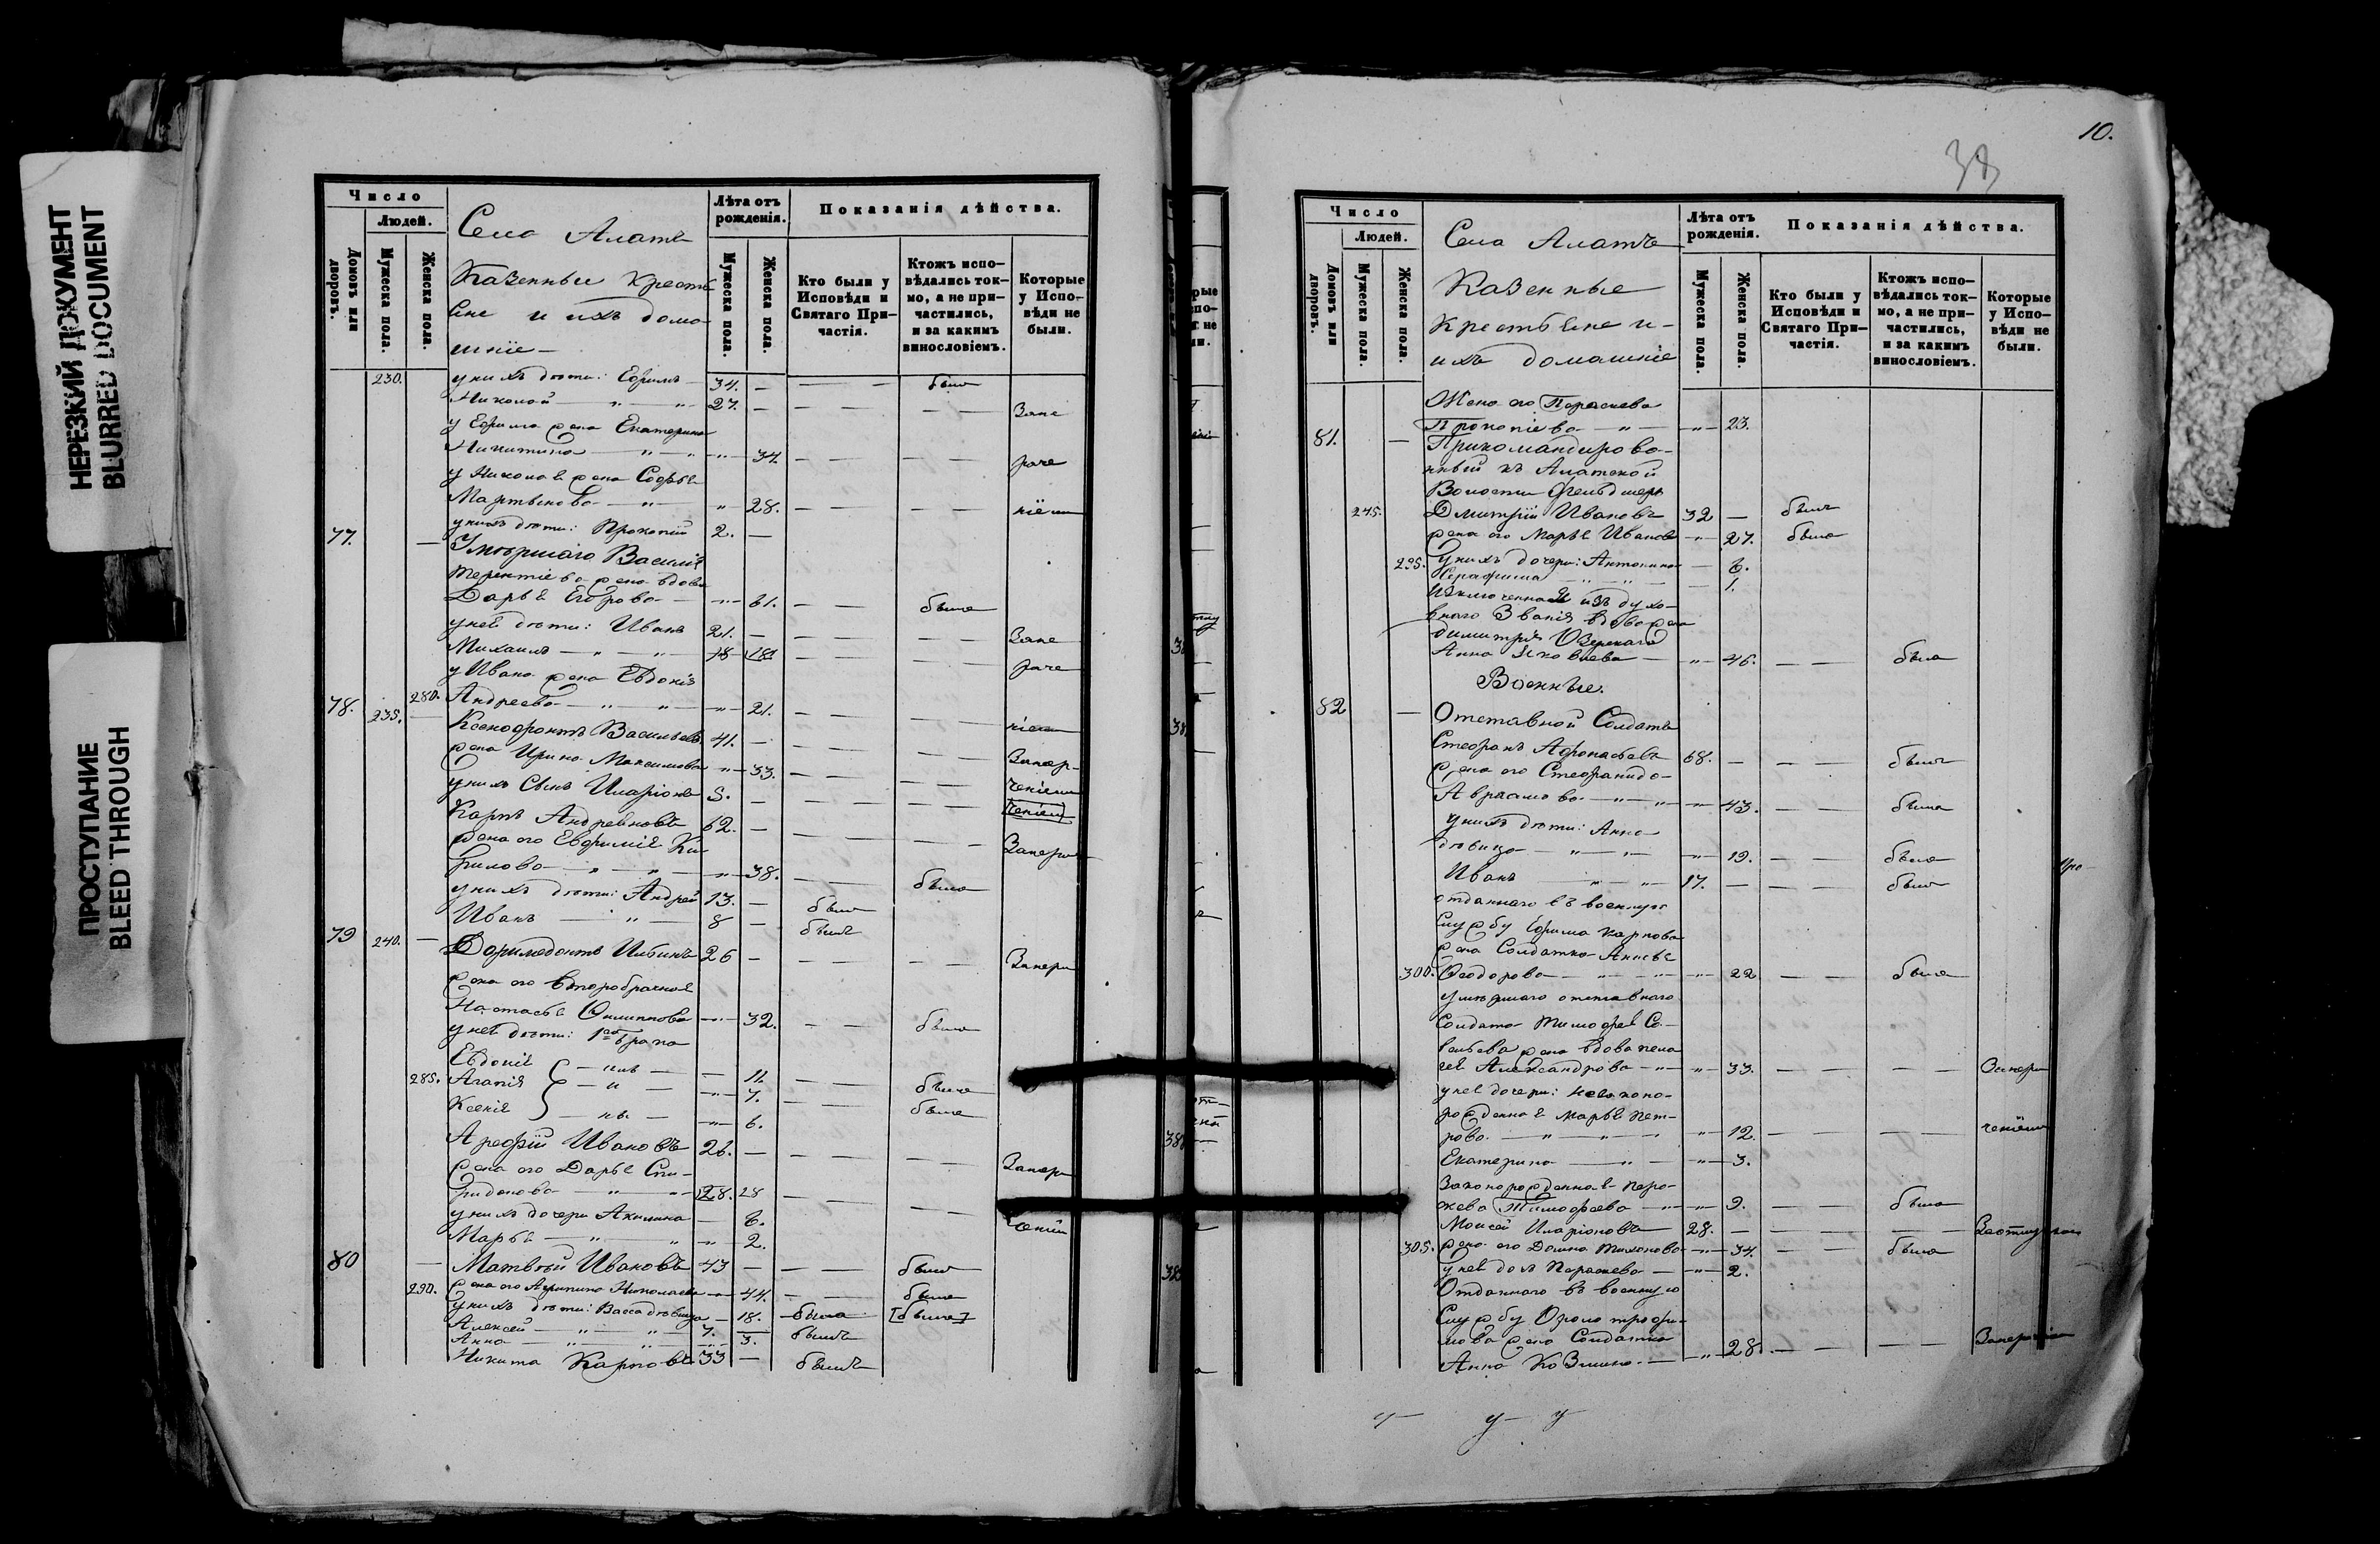 НЕРЕЗКИЙ ДОКУМЕНТ
BLURRED DOCUMENT
ПРОСТУПАНИЕ
BLEED THROUGH
Число
Людей.
Домовъ или дворовъ.
Мужеска пола.
Женска пола.
Села Алатъ
Казенные кресть
яне и ихъ дома
шніе
Лѣта отъ рожденія.
Мужеска пола.
Женска пола.
Показанія дѣйства.
Кто были у Исповѣди и Святаго При-частія.
Ктожъ испо-вѣдались ток-мо, а не при-частились, и за какимъ винословіемъ.
Которые у Испо-вѣди не были.
230. у нихъ дѣти: Ефимъ 34. — былъ
Николай 27. — Зане
у Ефима жена Екатерина
Никитина 34.
у Николая жена Софья
Мартынова 28.
у нихъ дѣти: Прокопій 2. —
77. — Умершаго Василія
Терентіева жена вдова
Дарья Егорова 61. была
у ней дѣти: Иванъ 21. — Зане
Михаилъ 18
у Ивана жена Евдокія
280. Андреева 21.
78. 235. — Ксенофонтъ Васильевъ 41. —
жена Ирина Максимова 33.
у нихъ сынъ Иларіонъ 5. —
Карпъ Андреяновъ 62. —
жена его Евфимія Ки
рилова 38. была
у нихъ дѣти: Андрей 13. — былъ
Иванъ 8 — былъ
79 240. — Доримедонтъ Ильинъ 26 —
жена его второбрачная
Настасья Филиппова 32. была
у ней дѣти: 1го брака
Евдокія 11. была
285. Агапія 7. была
Ксенія 6.
Арефій Ивановъ 26. —
жена его Дарья Спи-
ридонова 28. 28
у нихъ дочери Акилина 6.
Марья 2.
80 — Матвѣй Ивановъ 43 — былъ
290. жена его Агрипина Николаева 44. была
у нихъ дѣти: Васса дѣвица 18. была [была]
Алексей 7. былъ
Анна 3.
Никита Карповъ 33 — былъ
10.
Число
Людей.
Домовъ или дворовъ.
Мужеска пола.
Женска пола.
Села Алатъ
Казенные
крестьяне и
ихъ домашніе
Лѣта отъ рожденія.
Мужеска пола.
Женска пола.
Показанія дѣйства.
Кто были у Исповѣди и Святаго При-частія.
Ктожъ испо-вѣдались ток-мо, а не при-частились, и за какимъ винословіемъ.
Которые у Испо-вѣди не были.
Жена его Параскева
Прокопіева 23.
81. — Прикомандирова-
нный къ Алатской
Волости Фельдшеръ
245. Дмитрій Ивановъ 32 — былъ
жена его Марья Иванова 27. была
295. у нихъ дочери: Антонина 6.
Серафима 1.
Изключенная изъ духо-
внаго званія вдова жена
Димитрія Озерскаго
Анна Яковлева 46. была
Военные.
82 — Отставной Солдатъ
Стефанъ Афонасьевъ 68. — былъ
жена его Стефанида
Авраамова 43. была
у нихъ дѣти: Анна
дѣвица 19. была
Иванъ 17. — былъ
отданнаго въ военную
службу Ефима Карпова
жена Солдатка Анисья
300. Ѳеодорова 22 была
умершаго отставнаго
Солдата Тимофея Са-
вельева жена вдова Пела
гея Александрова 33.
у нея дочери: незаконо-
рожденная Марья Пет-
рова 12.
Екатерина 3.
Законорожденная Пара-
скева Тимофеева 9. была
Моисей Иларіоновъ 28. —
305. жена его Домна Тихонова 34. была
у нея дочь Параскева 2.
Отданнаго въ военную
службу Фрола Трофи-
мова жена Солдатка
Анна Козмина 28.